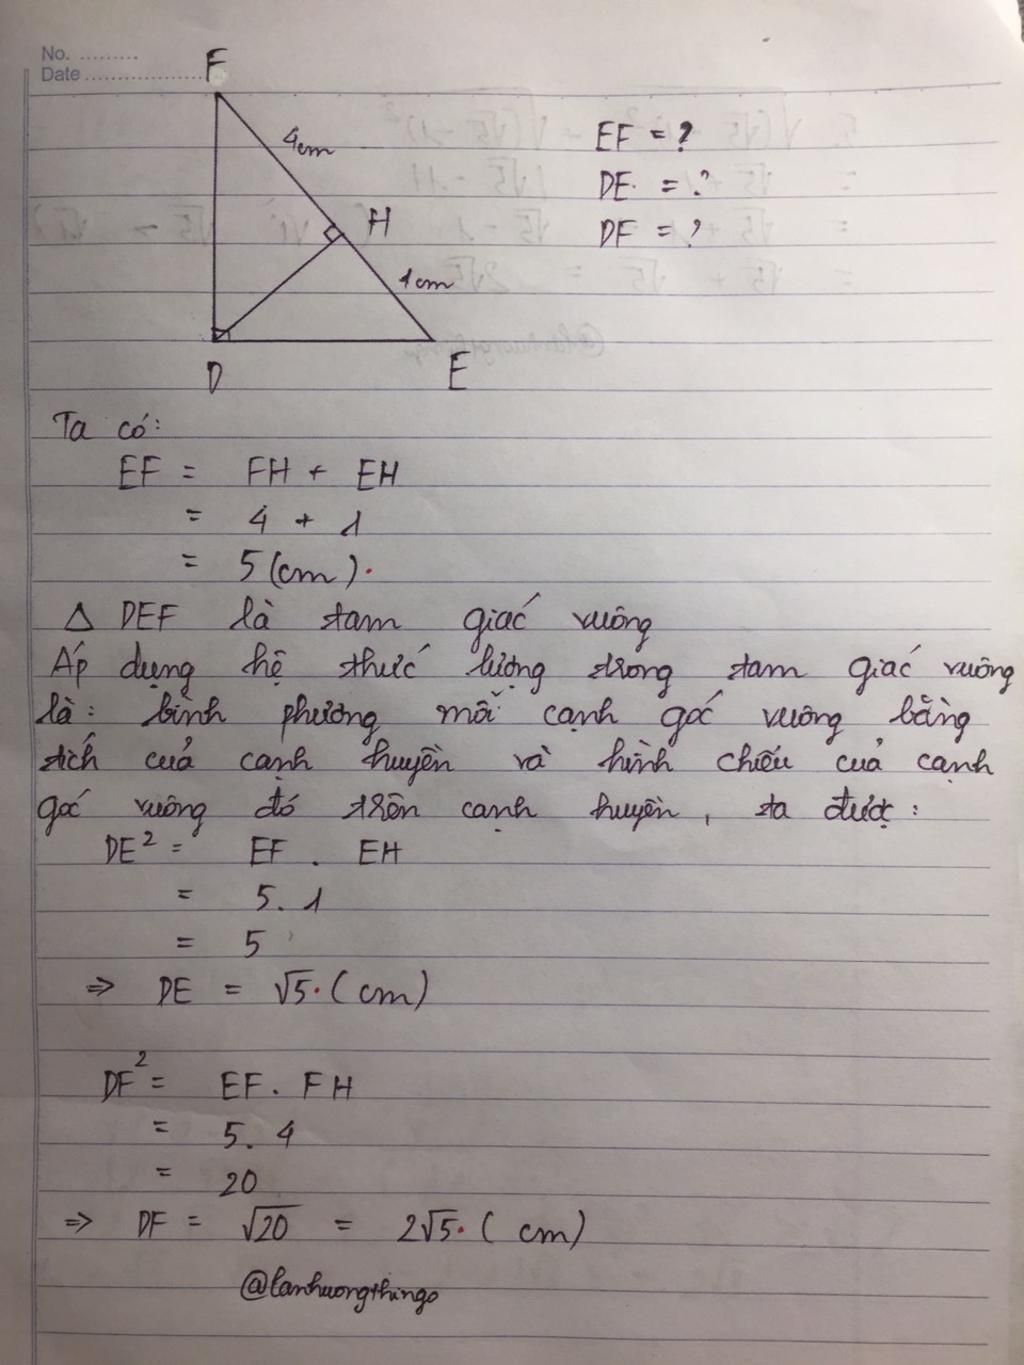 No. .........
Date ..................
F
4cm
EF = ?
DE = ?
DF = ?
H
1cm
D
E
Ta có:
EF = FH + EH
= 4 + 1
= 5 (cm).
Δ DEF là tam giác vuông
Áp dụng hệ thức lượng trong tam giác vuông
là: bình phương mỗi cạnh góc vuông bằng
tích của cạnh huyền và hình chiếu của cạnh
góc vuông đó trên cạnh huyền, ta được:
DE² = EF . EH
= 5. 1
= 5
=> DE = √5. (cm)
DF² = EF. FH
= 5. 4
= 20
=> DF = √20 = 2√5. (cm)
@lanhuongthingo